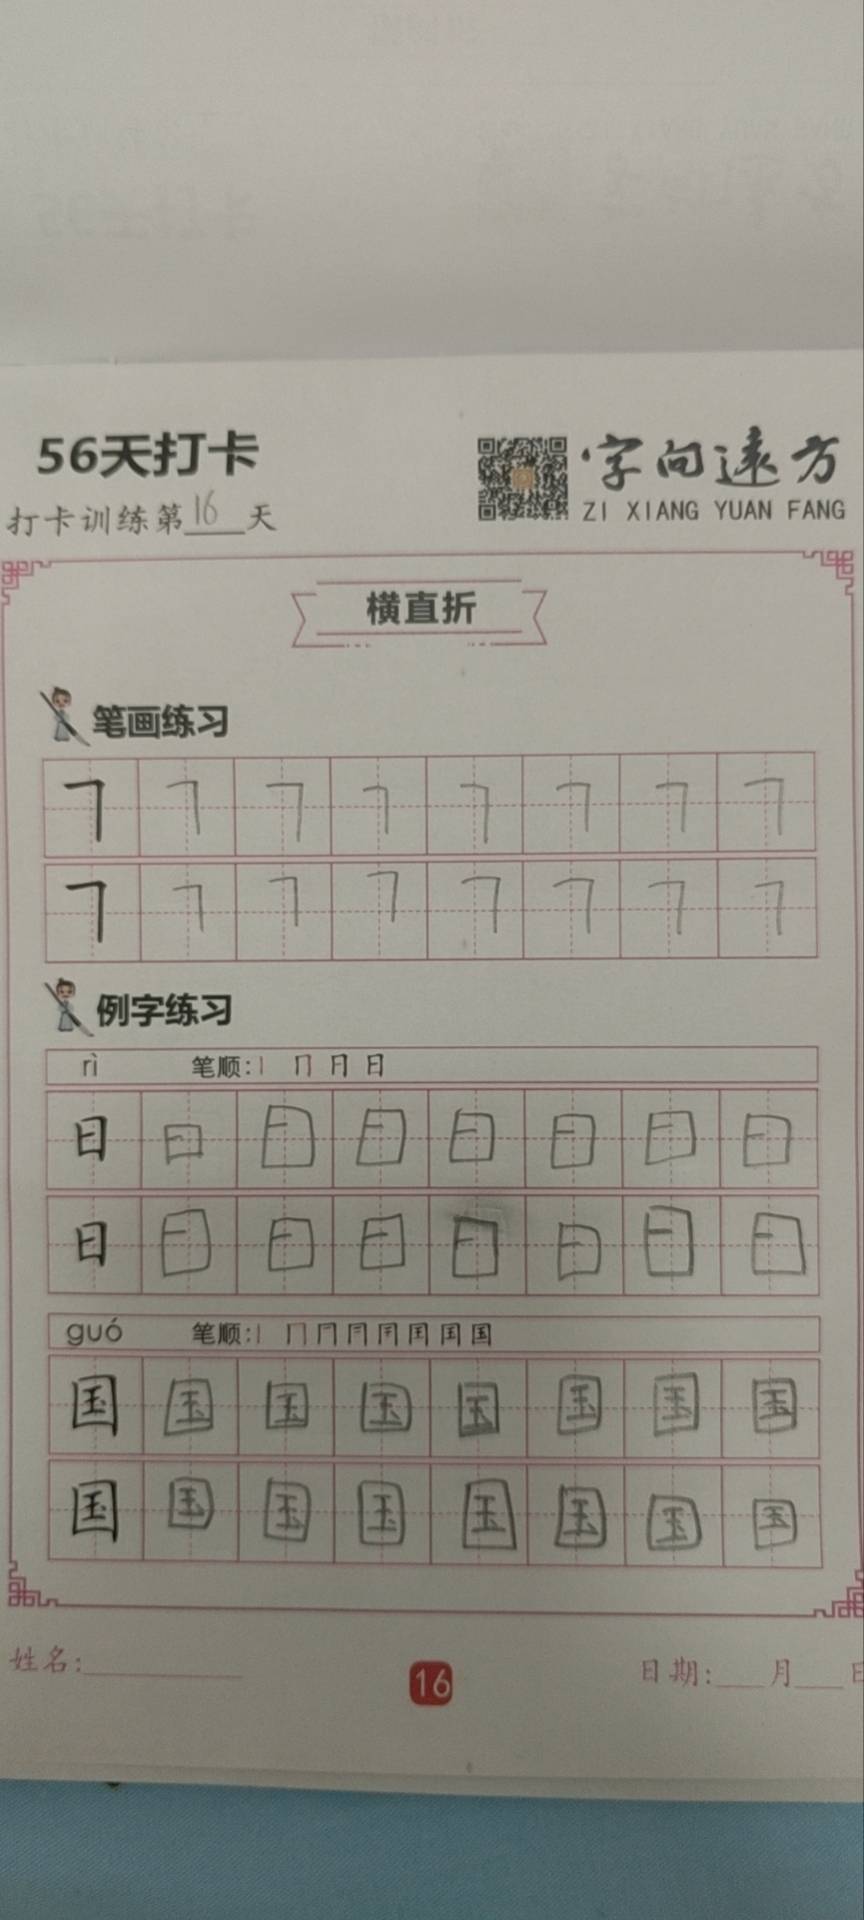 56天打卡
字向远方
ZI XIANG YUAN FANG
打卡训练第16天
横直折
笔画练习
㇕ ㇕ ㇕ ㇕ ㇕ ㇕ ㇕ ㇕
㇕ ㇕ ㇕ ㇕ ㇕ ㇕ ㇕ ㇕
例字练习
rì 笔顺:丨 冂 月 日
日 日 日 日 日 日 日 日
日 日 日 日 日 日 日 日
guó 笔顺:丨 冂 国
国 国 国 国 国 国 国 国
国 国 国 国 国 国 国 国
姓名:
16
日期: 月 日